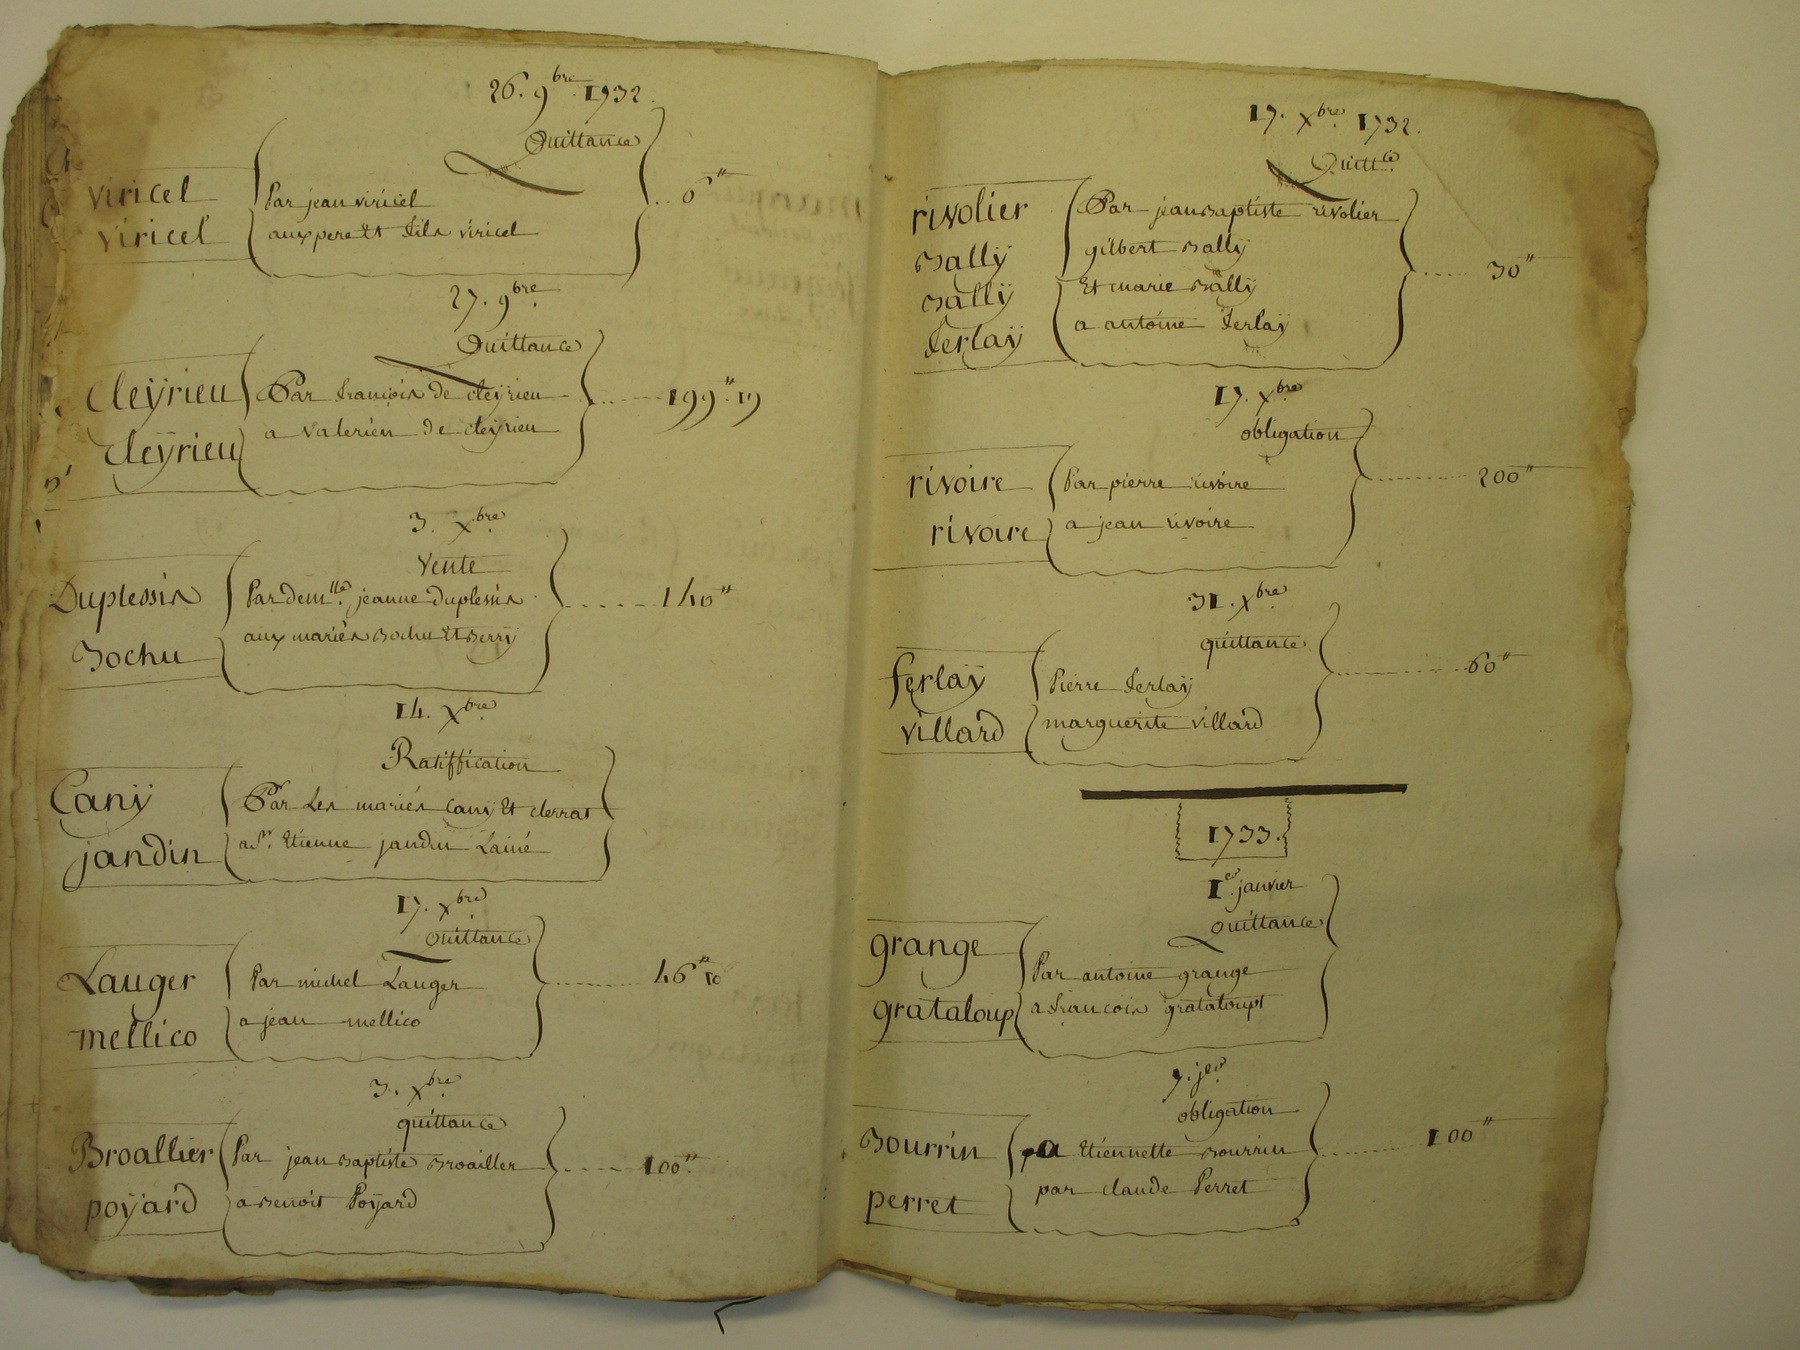 26. 9bre. 1732.
Quittance
viricel
viricel
Par jean viricel
aux pere Et fils viricel
6"
27. 9bre.
Quittance
Cleÿrieu
Cleÿrieu
Par francois de cleÿrieu
a Valerien de cleÿrieu
199" 19
3. Xbre.
Vente
Duplessis
Bochu
Par demlle. jeanne duplessis
aux mariés Bochu Et Berrÿ
140"
14. Xbre.
Ratiffication
Canÿ
jandin
Par Les mariés Canÿ Et clerrat
a Sr. Etienne jandin Lainé
17. Xbre.
Quittance
Lauger
mellico
Par michel Lauger
a jean mellico
46" 10
3. Xbre.
quittance
Broallier
poÿard
Par jean Baptiste Broallier
a Benoit Poÿard
100"
17. Xbre. 1732.
Quittce.
rivolier
Ballÿ
Ballÿ
ferlaÿ
Par jean Baptiste rivolier
gilbert Ballÿ
Et marie Ballÿ
a antoine ferlaÿ
30"
17. Xbre.
obligation
rivoire
rivoire
Par pierre rivoire
a jean rivoire
200"
31. Xbre.
quittance
ferlaÿ
villard
Pierre ferlaÿ
marguerite villard
60"
1733.
1er. janvier
Quittance
grange
grataloup
Par antoine grange
a francois grataloupt
9. jer.
obligation
Bourrin
perret
a Etiennette Bourrin
par claude Perret
100"